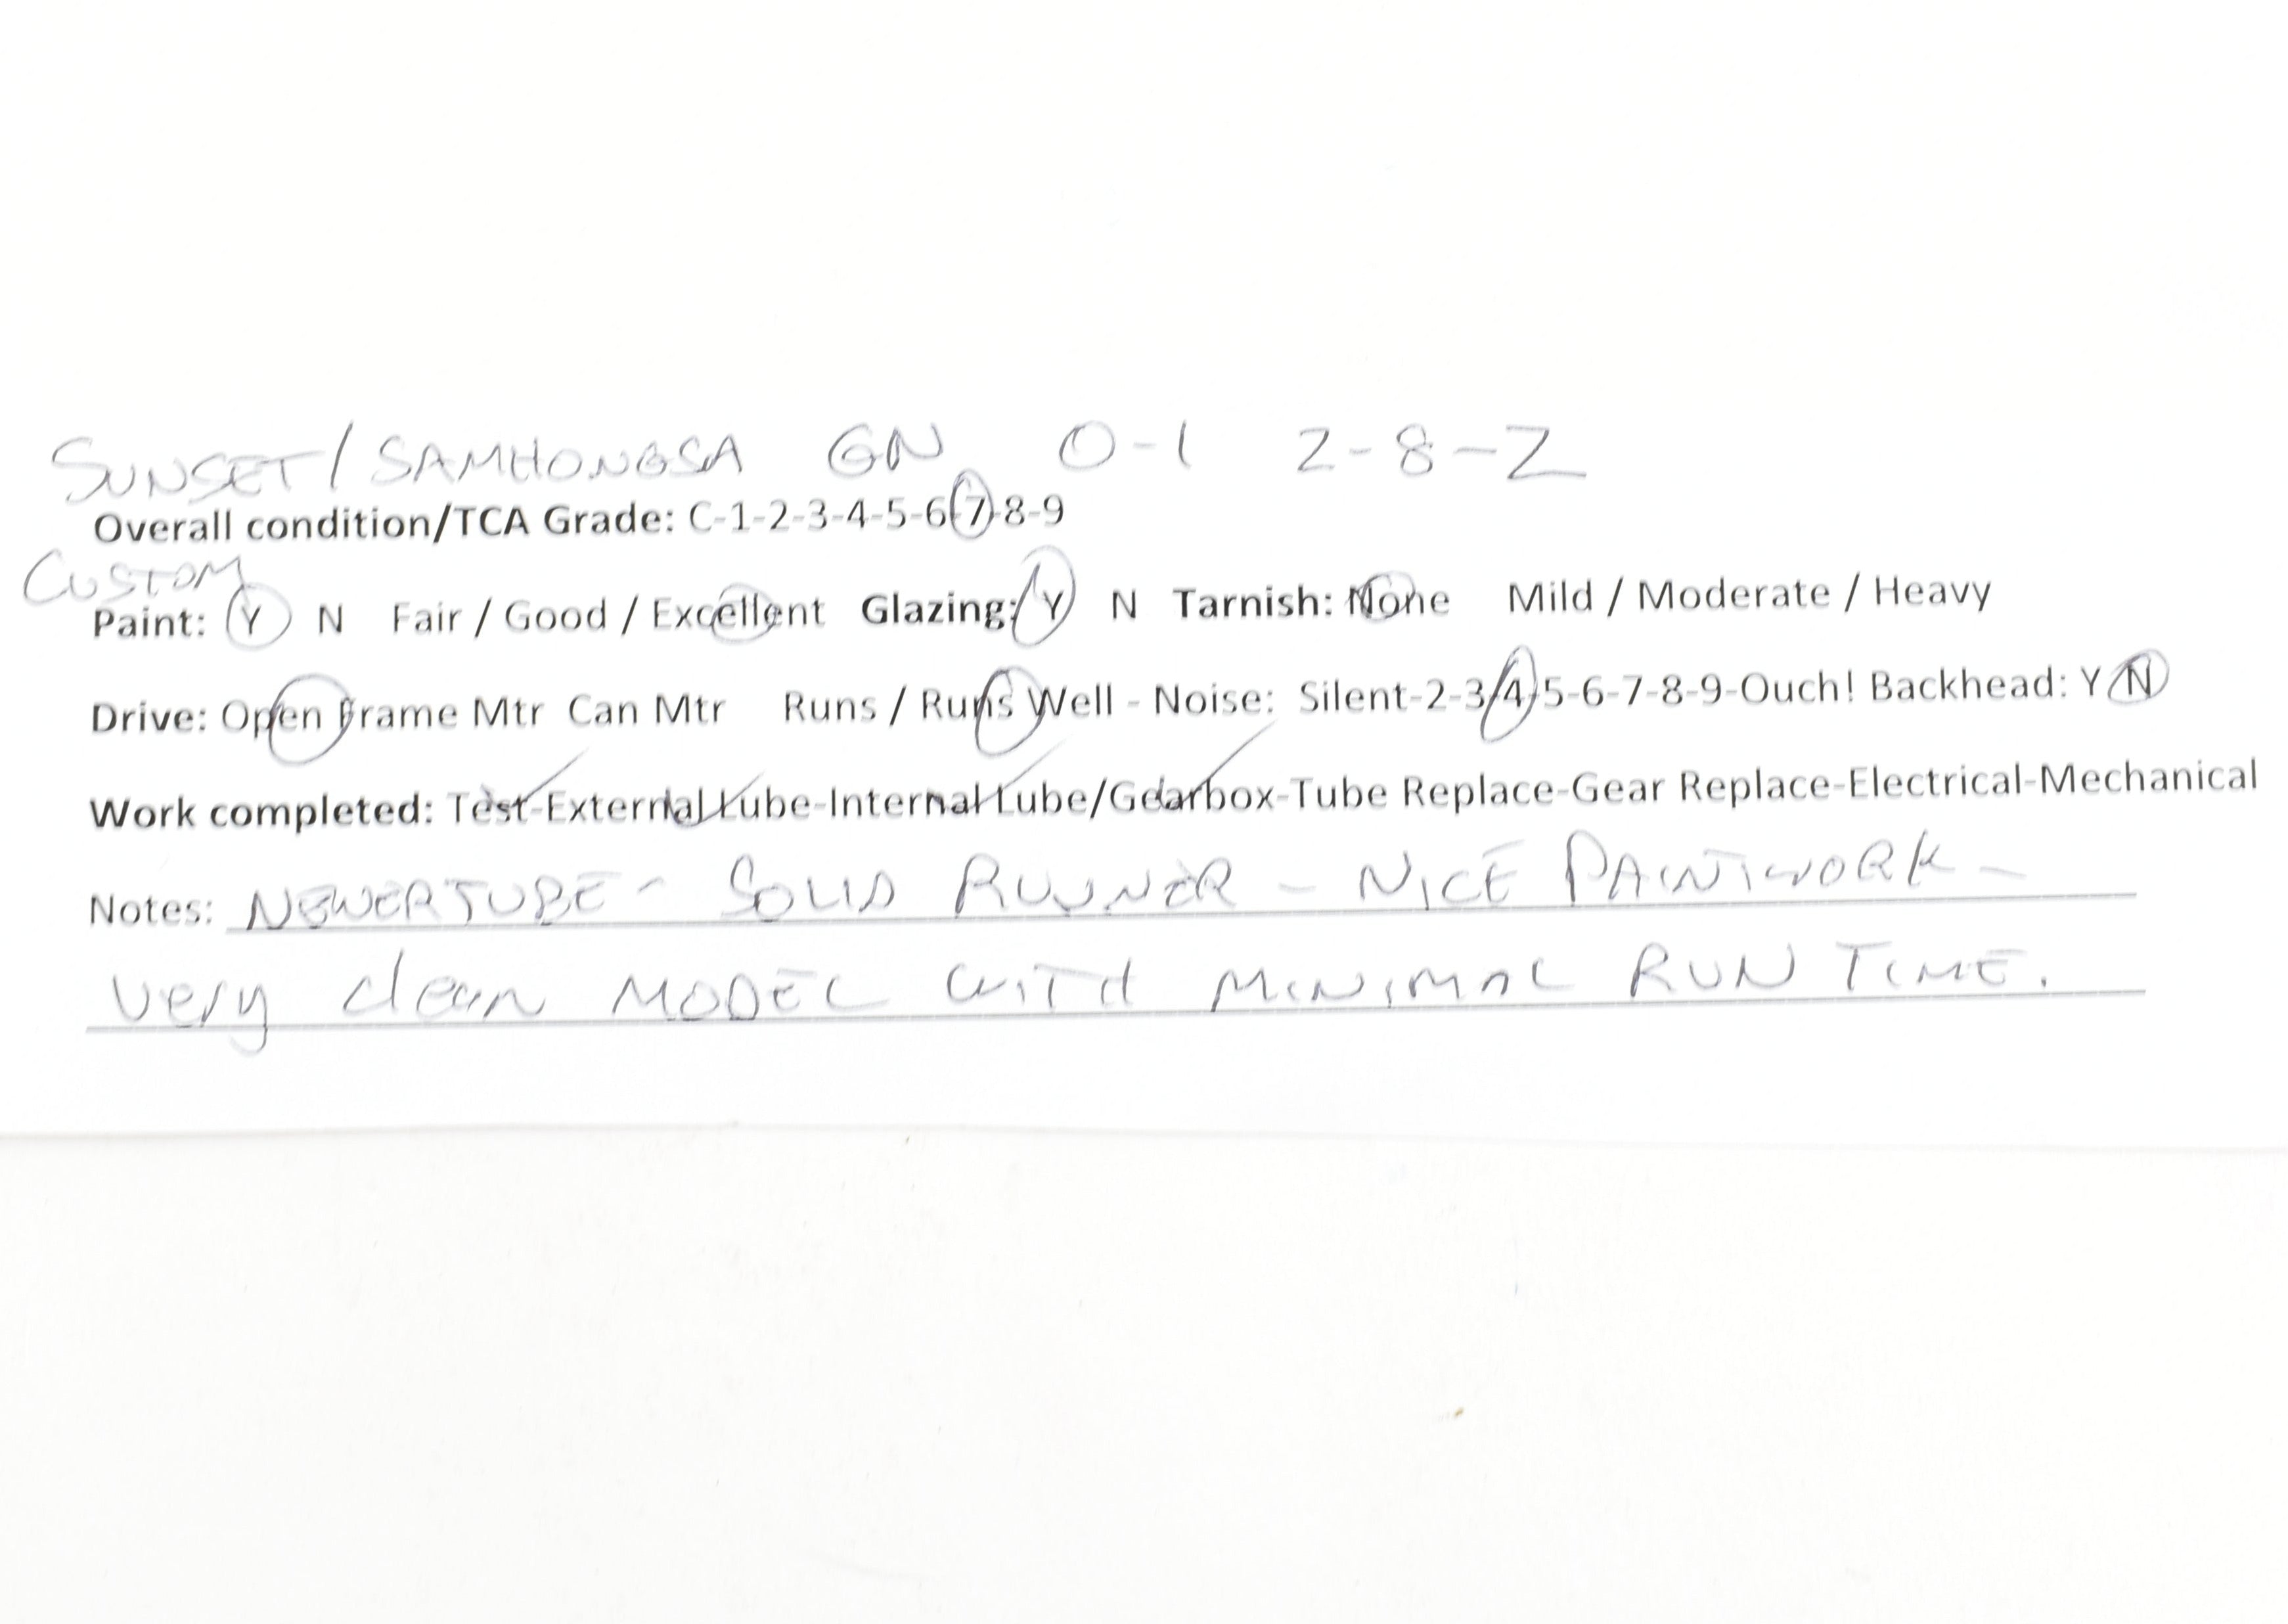 SUNSET/SAMHONGSA GN O-1 2-8-2
Overall condition/TCA Grade: C-1-2-3-4-5-6-7-8-9
CUSTOM
Paint: Y N Fair / Good / Excellent Glazing: Y N Tarnish: None Mild / Moderate / Heavy
Drive: Open Frame Mtr Can Mtr Runs / Runs Well - Noise: Silent-2-3-4-5-6-7-8-9-Ouch! Backhead: Y N
Work completed: Test-External Lube-Internal Lube/Gearbox-Tube Replace-Gear Replace-Electrical-Mechanical
Notes: NEWER TUBE - SOLID RUNNER - NICE PAINTWORK -
Very clean MODEL WITH MINIMAL RUN TIME.